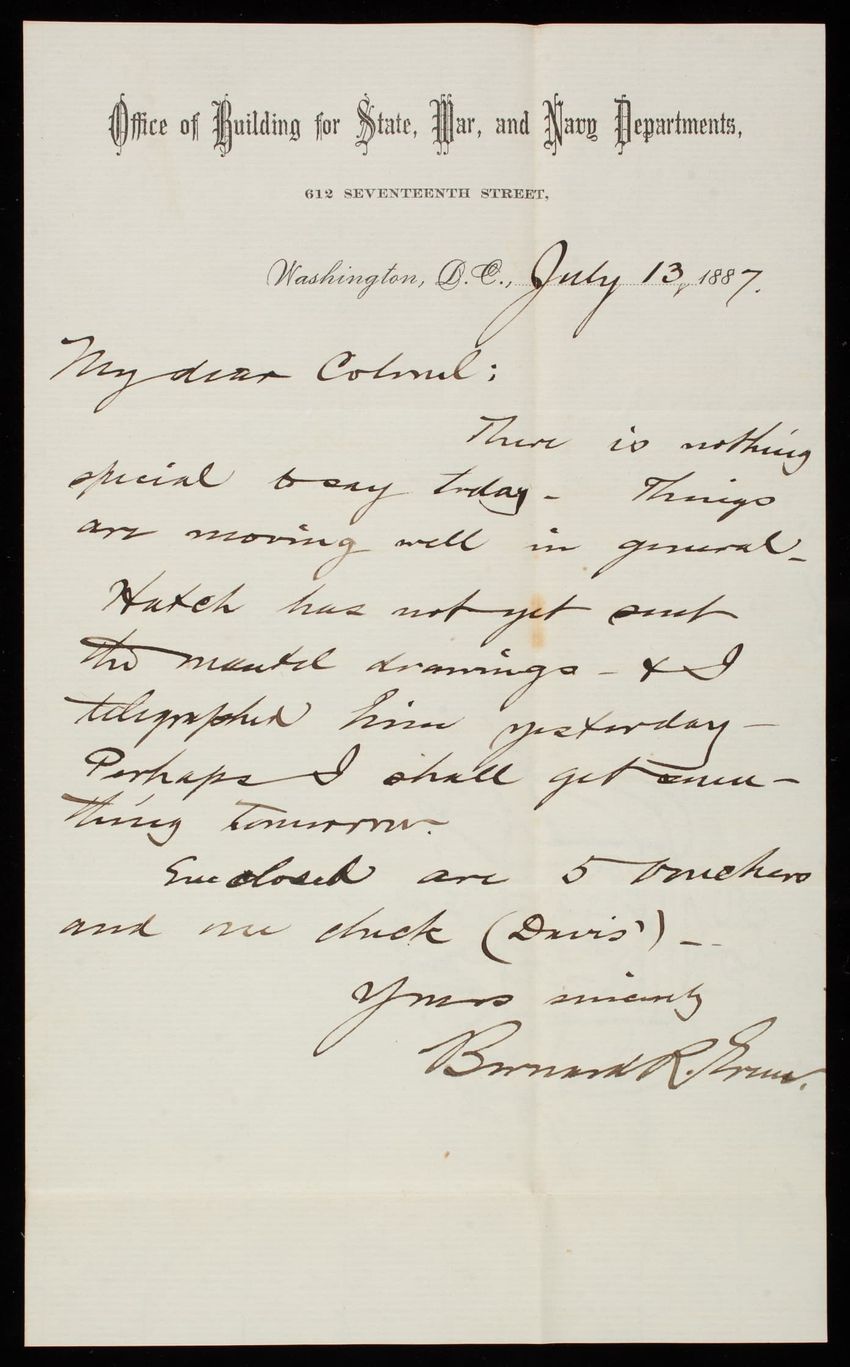 Office of Building for State, War, and Navy Departments,
612 SEVENTEENTH STREET,
Washington, D.C., July 13, 1887.
My dear Colonel:
There is nothing
special to say today - Things
are moving well in general -
Hatch has not yet sent
the mantel drawings - & I
telegraphed him yesterday -
Perhaps I shall get some-
thing tomorrow.
Enclosed are 5 vouchers
and one check (Davis') -
Yours sincerely
Bernard R. Green.